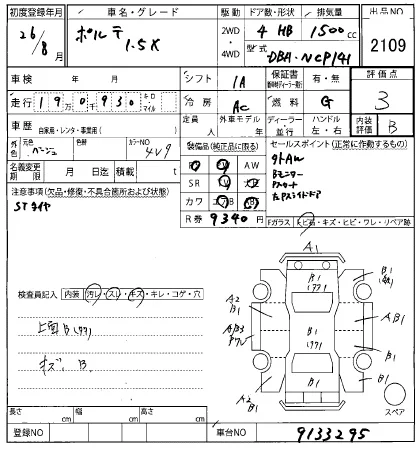 初度登録年月 車名・グレード 駆動 ドア数・形状 排気量 出品NO
26/8月 ポルテ 1.5X 2WD・4WD 4 HB 1500cc 2109
型式 DBA-NCP141
車検 年 月 シフト 1A 保証書 有・無 評価点
走行 19万0千930 キロ・マイル 冷房 AC 燃料 G 3
車歴 自家用・レンタ・事業用( ) 定員 人 外車モデル 年 ディーラー 並行 ハンドル 左・右 内装評価 B
外色 元色 ベージュ 色替 カラーNO 4V9
装備品(純正品に限る) セールスポイント(正常に作動するもの)
名義変更期限 月 日迄 積載 t
AW
SR
カワ
R券 9340円
Bモニター
注意事項(欠品・修復・不具合箇所および状態)
STタイヤ
Fガラス 飛び石・キズ・ヒビ・ワレ・リペア跡
検査員記入 内装 汚レ・スレ・キズ・キレ・コゲ・穴
A1
B1
A2 B1
B1
A1 B1
B1
B1
A2 B1
B1
スペア
長さ cm 幅 cm 高さ cm
登録NO 車台NO 9133295